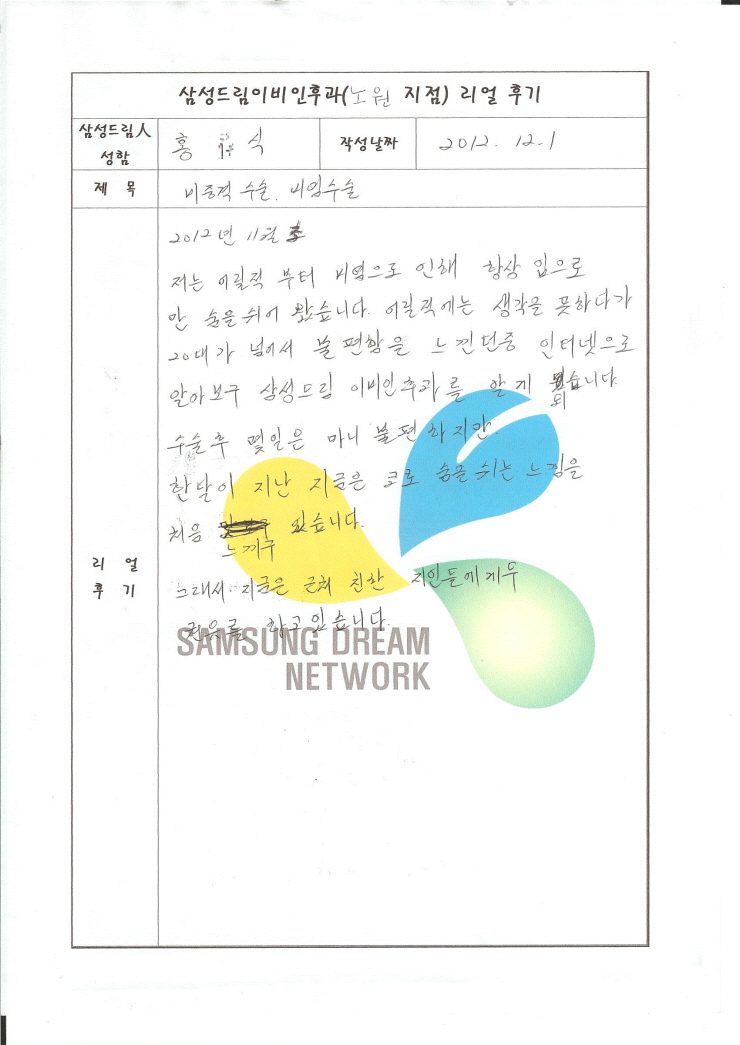 삼성드림이비인후과(노원 지점) 리얼 후기
삼성드림人 성함
홍 식
작성날짜
2012. 12. 1
제 목
비중격 수술. 비염수술
리 얼 후 기
2012년 11월
저는 어릴적 부터 비염으로 인해 항상 입으로
만 숨을 쉬어 왔습니다. 어릴적에는 생각을 못하다가
20대가 넘어서 불편함을 느낀던중 인터넷으로
알아보구 삼성드림 이비인후과를 알게 되습니다.
수술후 몇일은 마니 불편하지만.
한달이 지난 지금은 코로 숨을 쉬는 느낌을
처음 느끼구 있습니다.
그래서 지금은 근처 친한 지인들에게두
권유를 하고있습니다.
SAMSUNG DREAM
NETWORK